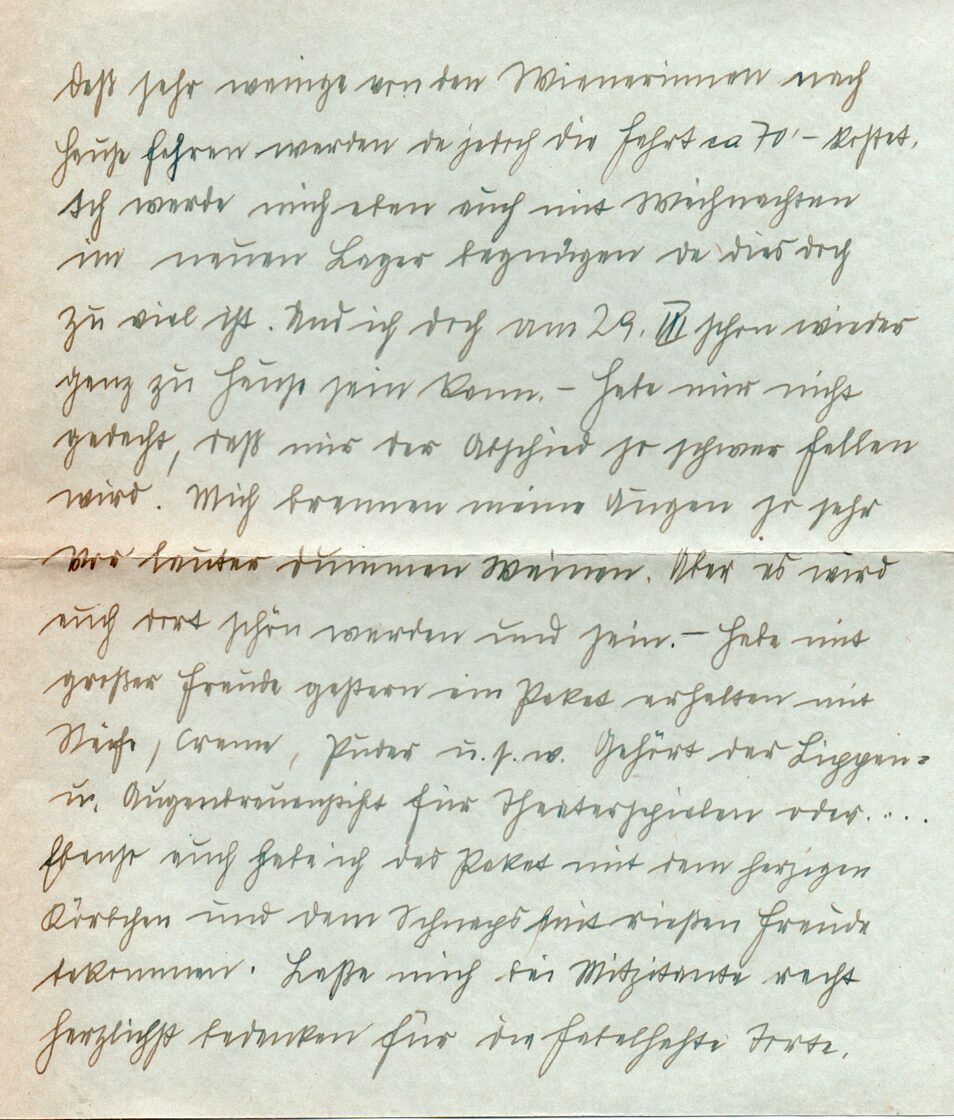 daß sehr wenige von den Wienerinnen nach
Hause fahren werden da jedoch die Fahrt ca 70'- kostet.
Ich werde mich eben auch mit Weihnachten
im neuen Lager begnügen da dies doch
zu viel ist. Und ich doch am 29. III schon wieder
ganz zu Hause sein kann. - Habe mir nicht
gedacht, daß mir der Abschied so schwer fallen
wird. Mich brennen meine Augen so sehr
vor lauter dummen Weinen. Aber es wird
auch dort schön werden und sein. - Habe mit
großer Freude gestern ein Paket erhalten mit
Seife, Creme, Puder u.s.w. Gehört der Lippen-
u. Augenbrauenstift für Theaterspielen oder....
Ebenso auch habe ich das Paket mit dem herzigen
Körbchen und dem Schnaps mit rießen Freude
bekommen. Laße mich bei Mitzitante recht
herzlichst bedanken für die fabelhafte Torte.